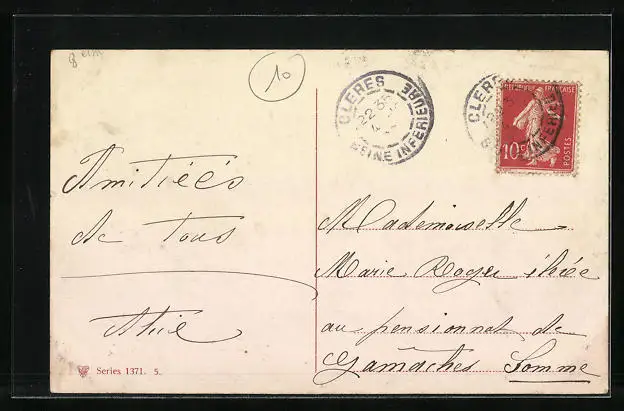 10
CLERES
22 35
SEINE INFERIEURE
REPUBLIQUE FRANCAISE
10c
POSTES
Amitiées
de Tous
Mademoiselle
Marie Roger
au pensionnat de
Gamaches Somme
Series 1371. 5.